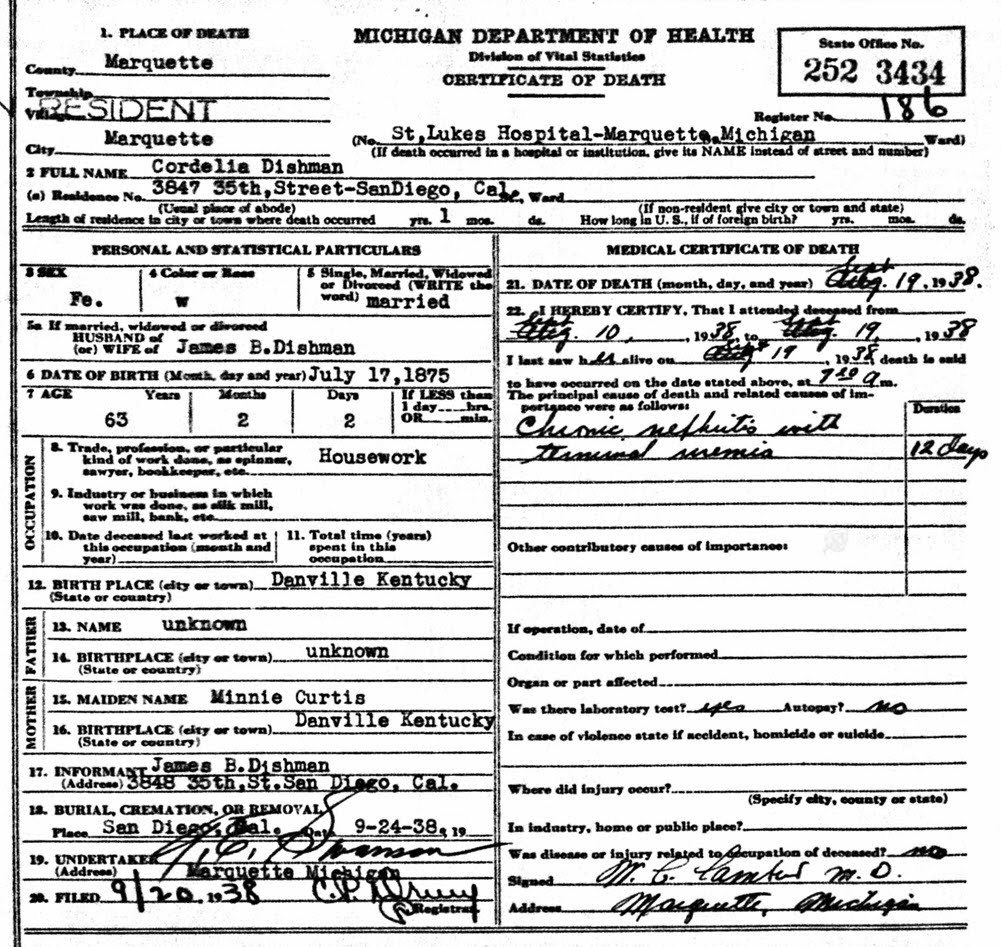 MICHIGAN DEPARTMENT OF HEALTH
Division of Vital Statistics
CERTIFICATE OF DEATH
State Office No.
252 3434
Register No. 186
1. PLACE OF DEATH
County Marquette
Township
Village RESIDENT
City Marquette
(No. St, Lukes Hospital-Marquette, Michigan Ward)
(If death occurred in a hospital or institution, give its NAME instead of street and number)
2 FULL NAME Cordelia Dishman
(a) Residence No. 3847 35th, Street-SanDiego, Cal. St., Ward
(Usual place of abode) (If non-resident give city or town and state)
Length of residence in city or town where death occurred yrs. 1 mos. ds. How long in U. S., if of foreign birth? yrs. mos. ds.
PERSONAL AND STATISTICAL PARTICULARS
3 SEX
Fe.
4 Color or Race
W
5 Single, Married, Widowed
or Divorced (WRITE the
word) married
5a If married, widowed or divorced
HUSBAND of
(or) WIFE of James B.Dishman
6 DATE OF BIRTH (Month, day and year) July 17,1875
7 AGE Years Months Days If LESS than
1 day hrs.
OR min.
63 2 2
OCCUPATION
8. Trade, profession, or particular
kind of work done, as spinner,
sawyer, bookkeeper, etc. Housework
9. Industry or business in which
work was done, as silk mill,
saw mill, bank, etc.
10. Date deceased last worked at
this occupation (month and
year)
11. Total time (years)
spent in this
occupation
12. BIRTH PLACE (city or town) Danville Kentucky
(State or country)
FATHER
13. NAME unknown
14. BIRTHPLACE (city or town) unknown
(State or country)
MOTHER
15. MAIDEN NAME Minnie Curtis
16. BIRTHPLACE (city or town) Danville Kentucky
(State or country)
17. INFORMANT James B.Dishman
(Address) 3848 35th, St.San Diego, Cal.
18. BURIAL, CREMATION, OR REMOVAL
Place San Diego, Cal. Date 9-24-38, 19
19. UNDERTAKER Swanson
(Address) Marquette Michigan
20. FILED 9/20 1938
Registrar
MEDICAL CERTIFICATE OF DEATH
21. DATE OF DEATH (month, day, and year) Sept Aug. 19, 1938.
22. I HEREBY CERTIFY, That I attended deceased from
Sept Aug 10, 1938 to Sept Aug 19, 1938
I last saw her alive on Sept Aug 19, 1938 death is said
to have occurred on the date stated above, at 7 30 a m.
The principal cause of death and related causes of im-
portance were as follows:
Duration
Chronic nephritis with
terminal uremia 12 days
Other contributory causes of importance:
If operation, date of
Condition for which performed
Organ or part affected
Was there laboratory test? yes Autopsy? no
In case of violence state if accident, homicide or suicide
Where did injury occur?
(Specify city, county or state)
In industry, home or public place?
Was disease or injury related to occupation of deceased? no
Signed W. C. Lambert M. D.
Address Marquette, Michigan